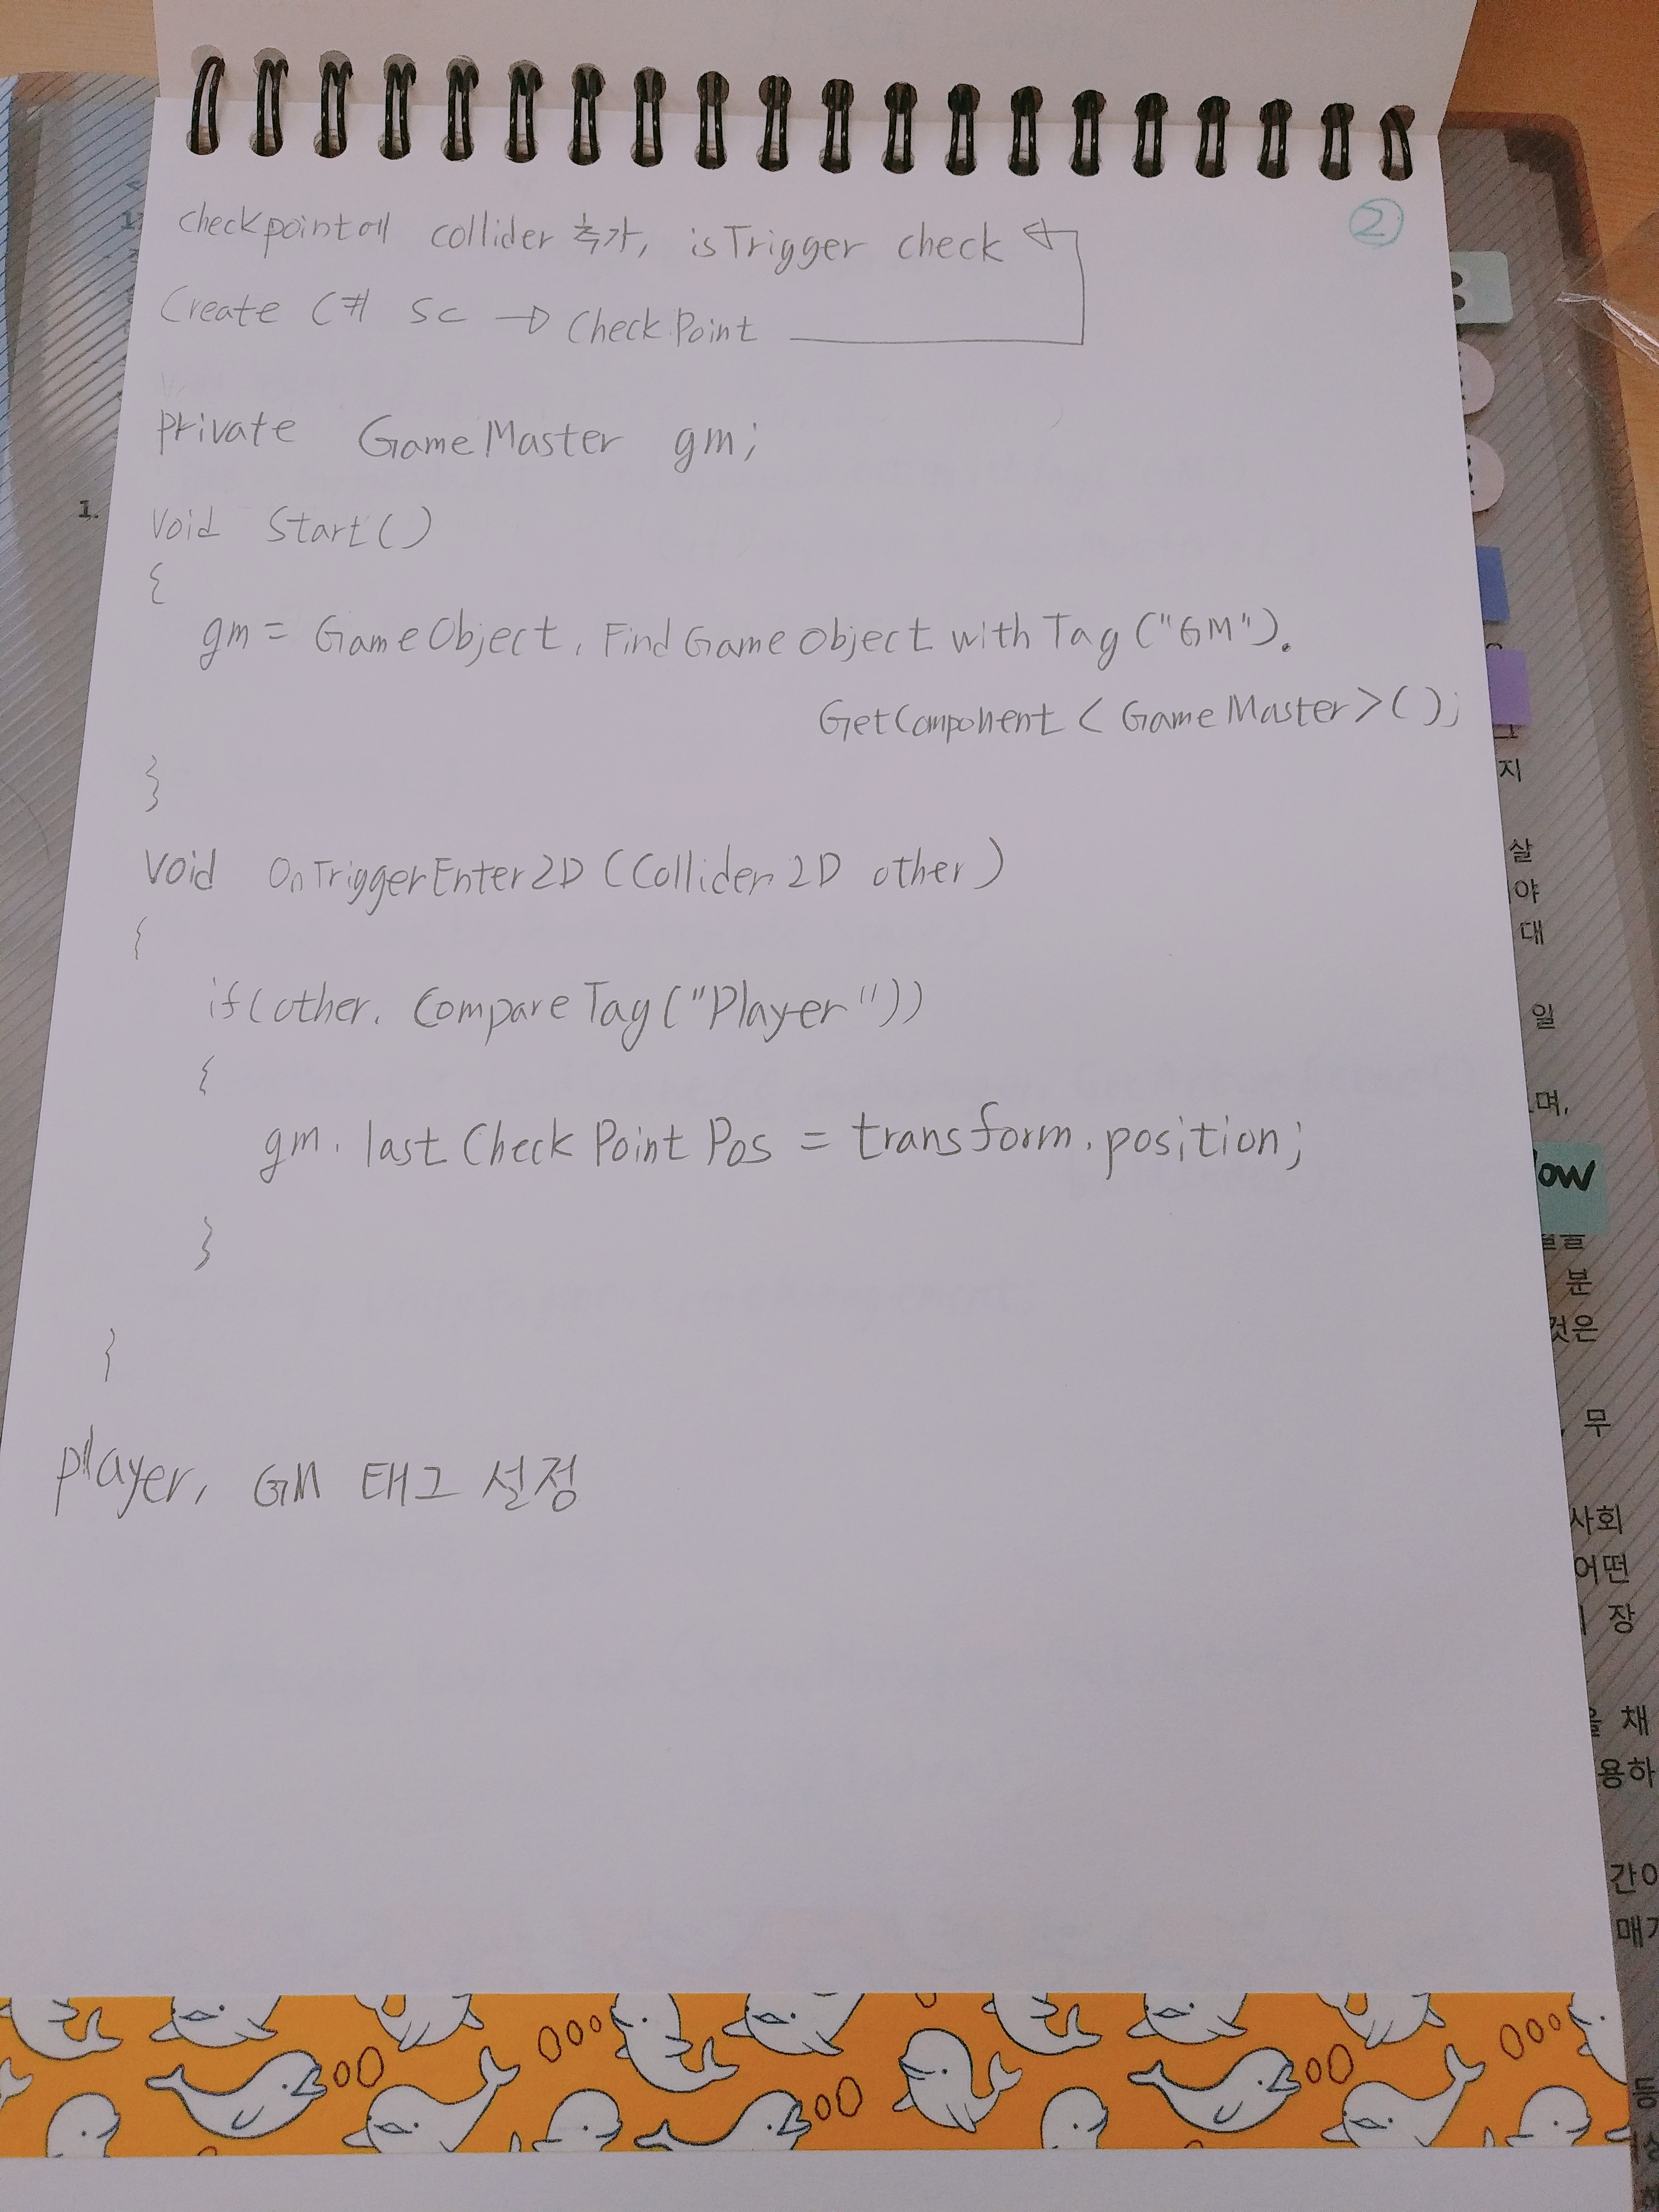 ②
checkpoint에 collider 추가, isTrigger check
Create C# Sc → CheckPoint
private GameMaster gm;
void Start()
{
gm = GameObject. Find GameObject with Tag ("GM").
GetComponent < GameMaster > ();
}
void OnTriggerEnter2D (Collider 2D other)
{
if (other. CompareTag ("Player"))
{
gm. last Check Point Pos = transform. position;
}
}
player, GM 태그 설정
1.
지
살
야
대
일
며,
low
분
것은
무
사회
어떤
장
채
용하
간이